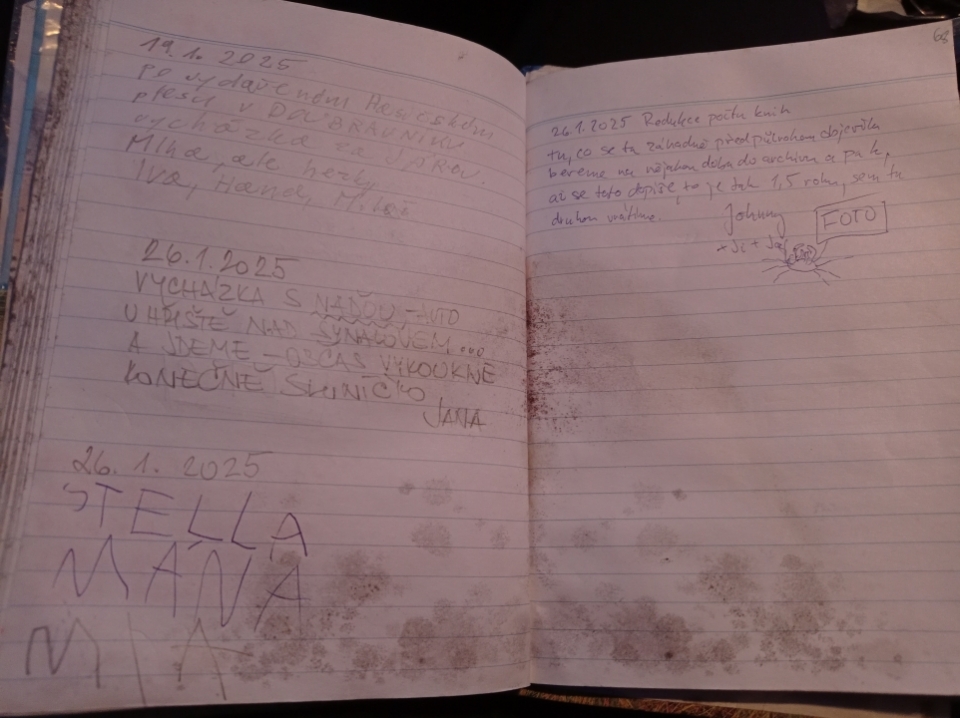 19.1. 2025
po vydařeném Hasičském
plesu v DOUBRAVNÍKU
vycházka na
Mlha, ale hezky
Iva, Hanka,
26.1.2025
VYCHÁZKA S NAĎOU - AUTO
U HŘIŠTĚ NAD SYNALOVEM...
A JDEME - OBČAS VYKOUKNE
KONEČNĚ SLUNÍČKO
JANA
26. 1. 2025
STELLA
MÁŇA
MIA
63
26.1.2025 Redukce počtu knih
tu, co se tu záhadně před půlrokem objevila
bereme na nějakou dobu do archivu a pak,
až se tato dopíše, to je tak 1,5 roku, sem tu
druhou vrátíme.
Johnny
FOTO